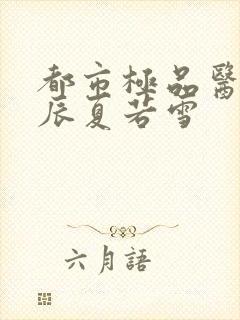 都市極品醫
辰夏若雪
六月語